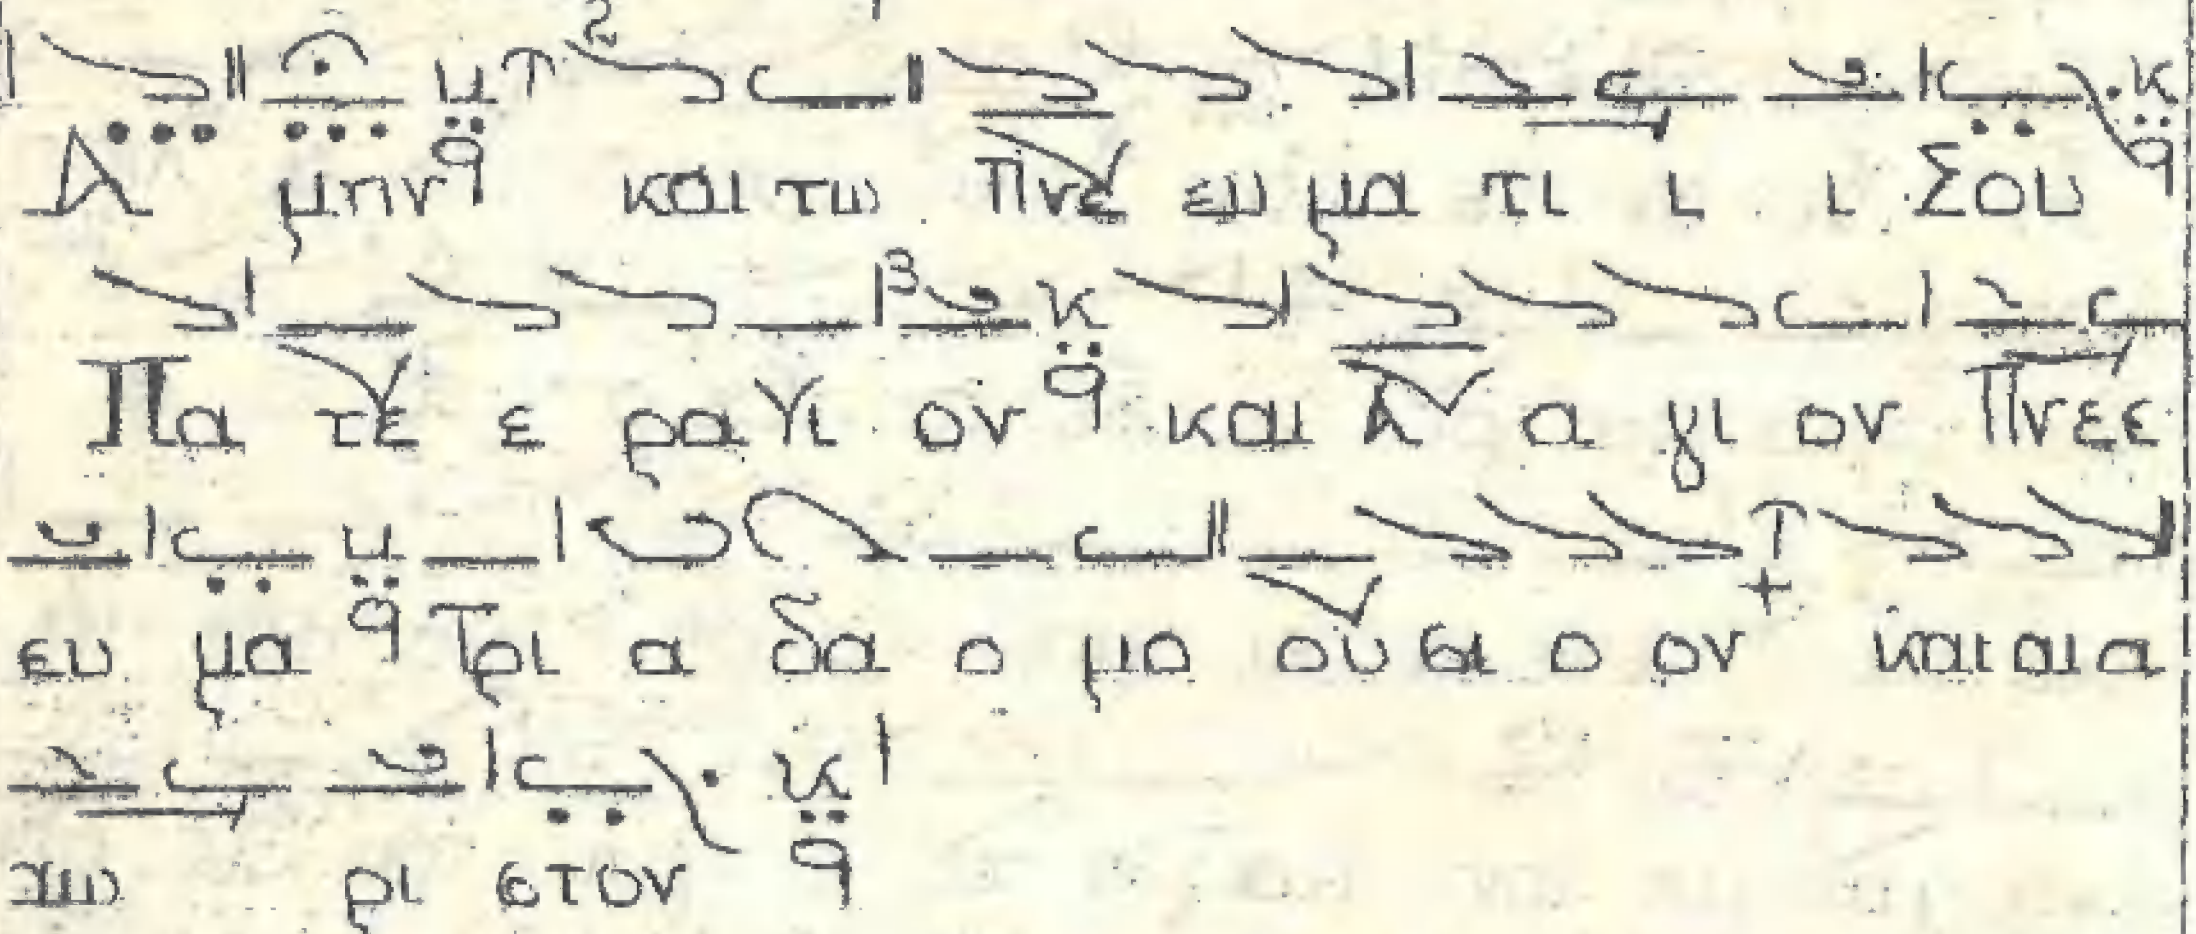 Α μην και τω Πνε ευ μα τι ι ι Σου
Πα τε ε ρα Υι ον και Α α γι ον Πνεε
ευ μα Τρι α δα ο μο ου σι ο ον και αι α
χω ρι στον